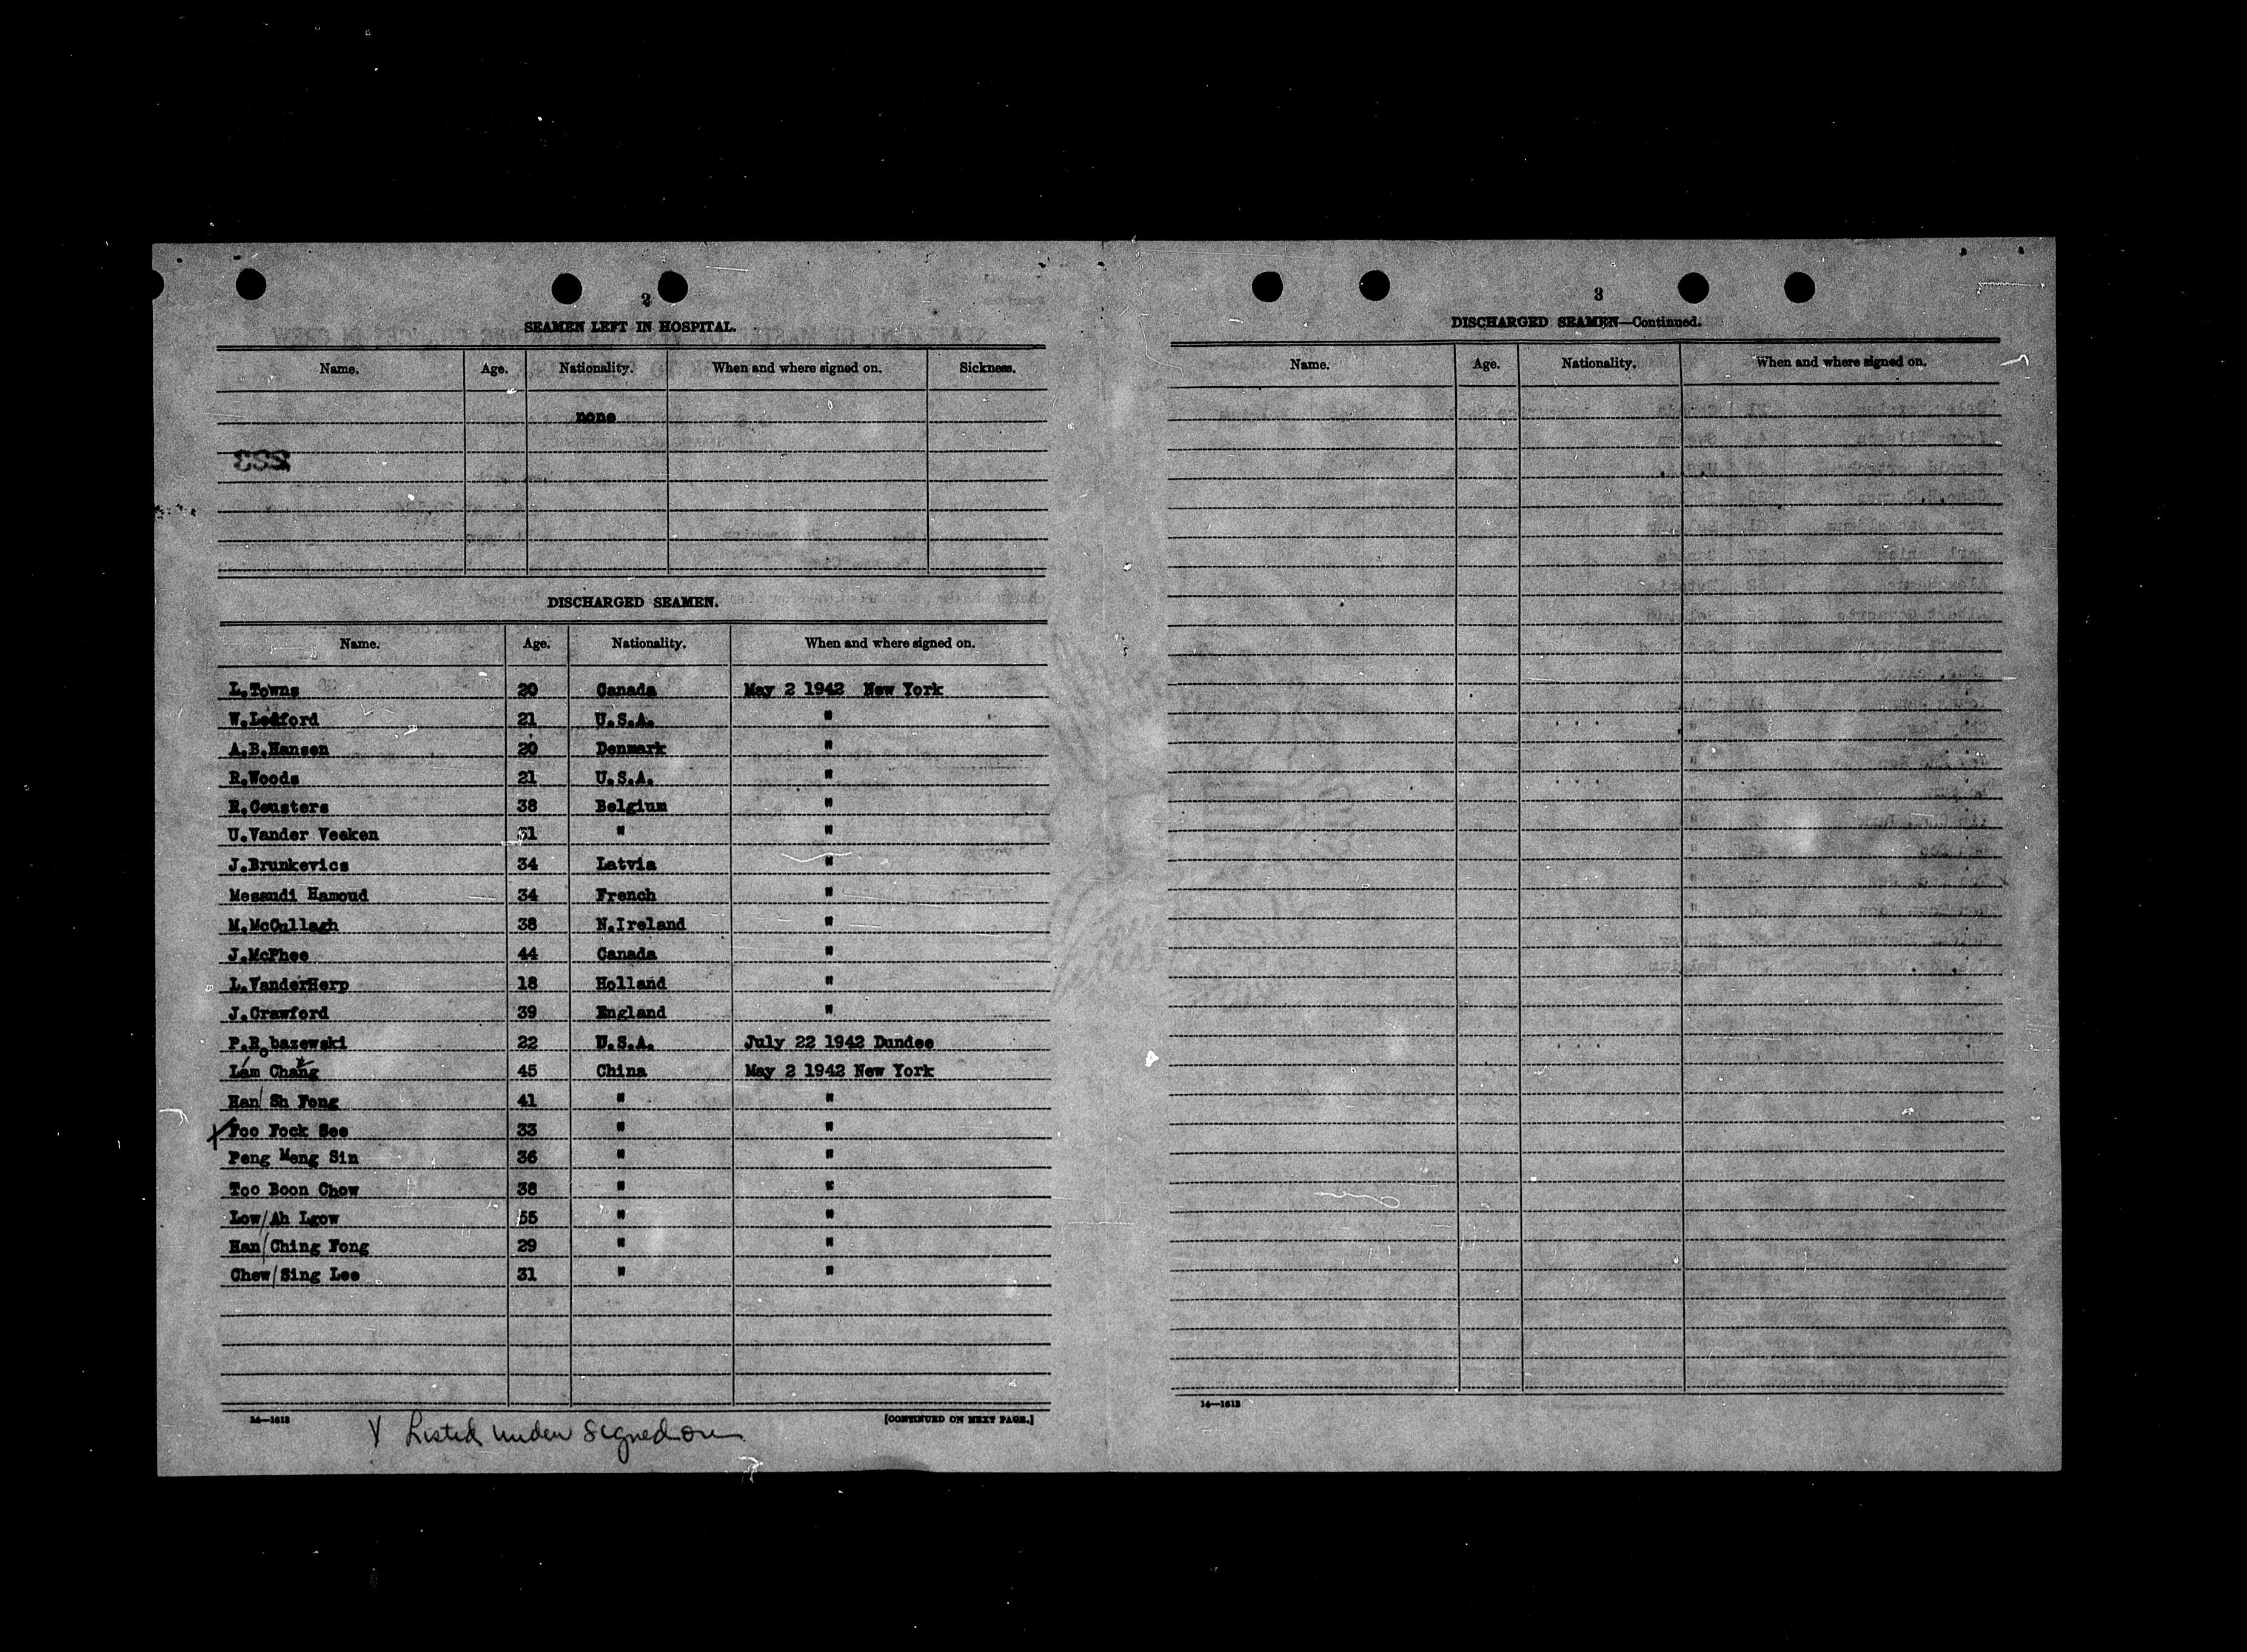 2
SEAMEN LEFT IN HOSPITAL.
Name. Age. Nationality. When and where signed on. Sickness.
none
DISCHARGED SEAMEN.
Name. Age. Nationality. When and where signed on.
L.Towns 20 Canada May 2 1942 New York
W.Ledford 21 U.S.A. "
A.B.Hansen 20 Denmark "
R.Woods 21 U.S.A. "
R.Ceusters 38 Belgium "
U.Vander Veeken 31 " "
J.Brunkevics 34 Latvia "
Messudi Hamoud 34 French "
M.McCullagh 38 N.Ireland "
J.McPhee 44 Canada "
L.VanderHerp 18 Holland "
J.Crawford 39 England "
P.Robazewski 22 U.S.A. July 22 1942 Dundee
Lam Chang 45 China May 2 1942 New York
Han/ Sh Fong 41 " "
X Foo Fock See 33 " "
Peng Meng Sin 36 " "
Too Boon Chow 38 " "
Low/Ah Lgow 55 " "
Han/Ching Fong 29 " "
Chew/Sing Lee 31 " "
14—1612 [CONTINUED ON NEXT PAGE.]
X Listed under signed on
3
DISCHARGED SEAMEN—Continued.
Name. Age. Nationality. When and where signed on.
14—1612